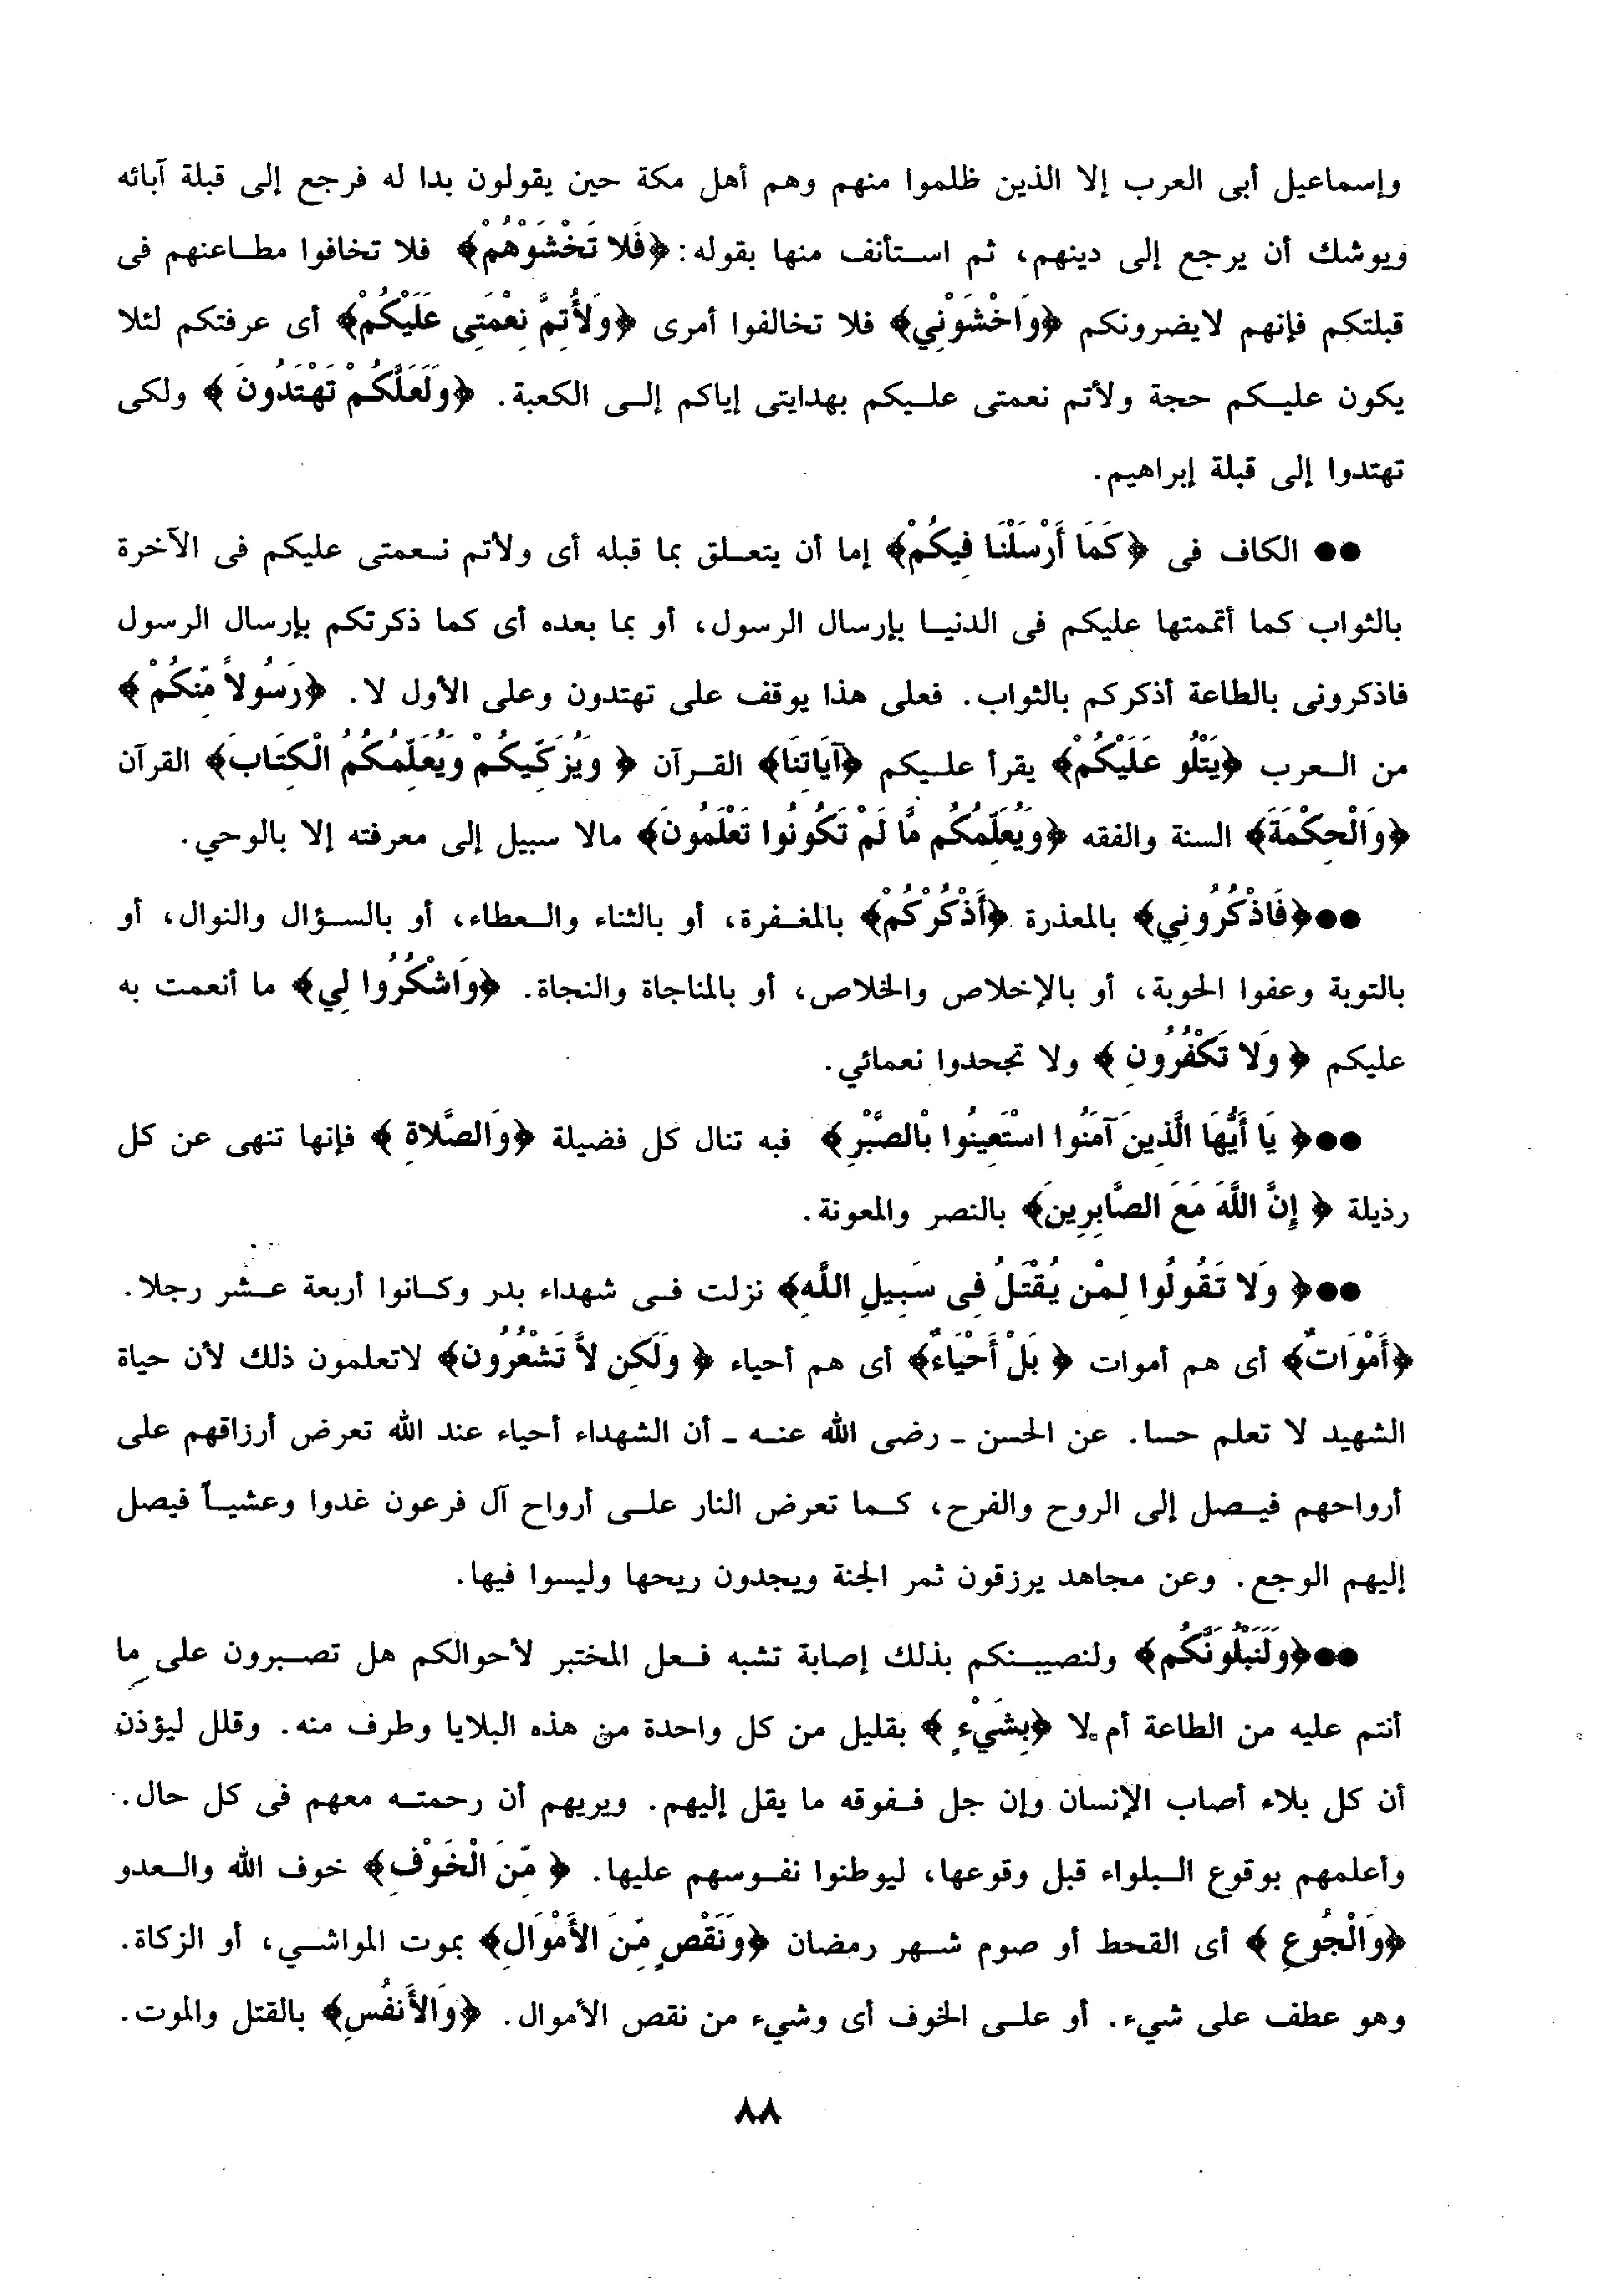 وإسماعيل أبى العرب إلا الذين ظلموا منهم وهم أهل مكة حين يقولون بدا له فرجع إلى قبلة آبائه
ويوشك أن يرجع إلى دينهم، ثم استأنف منها بقوله: ﴿فَلا تَخْشَوْهُمْ﴾ فلا تخافوا مطاعنهم فى
قبلتكم فإنهم لايضرونكم ﴿وَاخْشَوْنِي﴾ فلا تخالفوا أمرى ﴿وَلأُتِمَّ نِعْمَتِى عَلَيْكُمْ﴾ أى عرفتكم لئلا
يكون عليكم حجة ولأتم نعمتى عليكم بهدايتى إياكم إلى الكعبة. ﴿وَلَعَلَّكُمْ تَهْتَدُونَ﴾ ولكى
تهتدوا إلى قبلة إبراهيم.
●● الكاف فى ﴿كَمَا أَرْسَلْنَا فِيكُمْ﴾ إما أن يتعلق بما قبله أى ولأتم نعمتى عليكم فى الآخرة
بالثواب كما أتممتها عليكم فى الدنيا بإرسال الرسول، أو بما بعده أى كما ذكرتكم بإرسال الرسول
فاذكرونى بالطاعة أذكركم بالثواب. فعلى هذا يوقف على تهتدون وعلى الأول لا. ﴿رَسُولاً مِّنكُمْ﴾
من العرب ﴿يَتْلُو عَلَيْكُمْ﴾ يقرأ عليكم ﴿آيَاتِنَا﴾ القرآن ﴿وَيُزَكِّيكُمْ وَيُعَلِّمُكُمُ الْكِتَابَ﴾ القرآن
﴿وَالْحِكْمَةَ﴾ السنة والفقه ﴿وَيُعَلِّمُكُم مَّا لَمْ تَكُونُوا تَعْلَمُونَ﴾ مالا سبيل إلى معرفته إلا بالوحي.
●●﴿فَاذْكُرُونِي﴾ بالمعذرة ﴿أَذْكُرْكُمْ﴾ بالمغفرة، أو بالثناء والعطاء، أو بالسؤال والنوال، أو
بالتوبة وعفوا الحوبة، أو بالإخلاص والخلاص، أو بالمناجاة والنجاة. ﴿وَاشْكُرُوا لِي﴾ ما أنعمت به
عليكم ﴿وَلا تَكْفُرُونِ﴾ ولا تجحدوا نعمائي.
●●﴿يَا أَيُّهَا الَّذِينَ آمَنُوا اسْتَعِينُوا بِالصَّبْرِ﴾ فبه تنال كل فضيلة ﴿وَالصَّلاةِ﴾ فإنها تنهى عن كل
رذيلة ﴿إِنَّ اللَّهَ مَعَ الصَّابِرِينَ﴾ بالنصر والمعونة.
●●﴿وَلا تَقُولُوا لِمَنْ يُقْتَلُ فِى سَبِيلِ اللَّهِ﴾ نزلت فى شهداء بدر وكانوا أربعة عشر رجلا.
﴿أَمْوَاتٌ﴾ أى هم أموات ﴿بَلْ أَحْيَاءٌ﴾ أى هم أحياء ﴿وَلَكِن لاَّ تَشْعُرُونَ﴾ لاتعلمون ذلك لأن حياة
الشهيد لا تعلم حسا. عن الحسن ـ رضى الله عنه ـ أن الشهداء أحياء عند الله تعرض أرزاقهم على
أرواحهم فيصل إلى الروح والفرح، كما تعرض النار على أرواح آل فرعون غدوا وعشياً فيصل
إليهم الوجع. وعن مجاهد يرزقون ثمر الجنة ويجدون ريحها وليسوا فيها.
●●﴿وَلَنَبْلُوَنَّكُم﴾ ولنصيبنكم بذلك إصابة تشبه فعل المختبر لأحوالكم هل تصبرون على ما
أنتم عليه من الطاعة أم لا ﴿بِشَيْءٍ﴾ بقليل من كل واحدة من هذه البلايا وطرف منه. وقلل ليؤذن
أن كل بلاء أصاب الإنسان وإن جل ففوقه ما يقل إليهم. ويريهم أن رحمته معهم فى كل حال.
وأعلمهم بوقوع البلواء قبل وقوعها، ليوطنوا نفوسهم عليها. ﴿مِّنَ الْخَوْفِ﴾ خوف الله والعدو
﴿وَالْجُوعِ﴾ أى القحط أو صوم شهر رمضان ﴿وَنَقْصٍ مِّنَ الأَمْوَالِ﴾ بموت المواشي، أو الزكاة.
وهو عطف على شيء. أو على الخوف أى وشيء من نقص الأموال. ﴿وَالأَنفُسِ﴾ بالقتل والموت.
٨٨